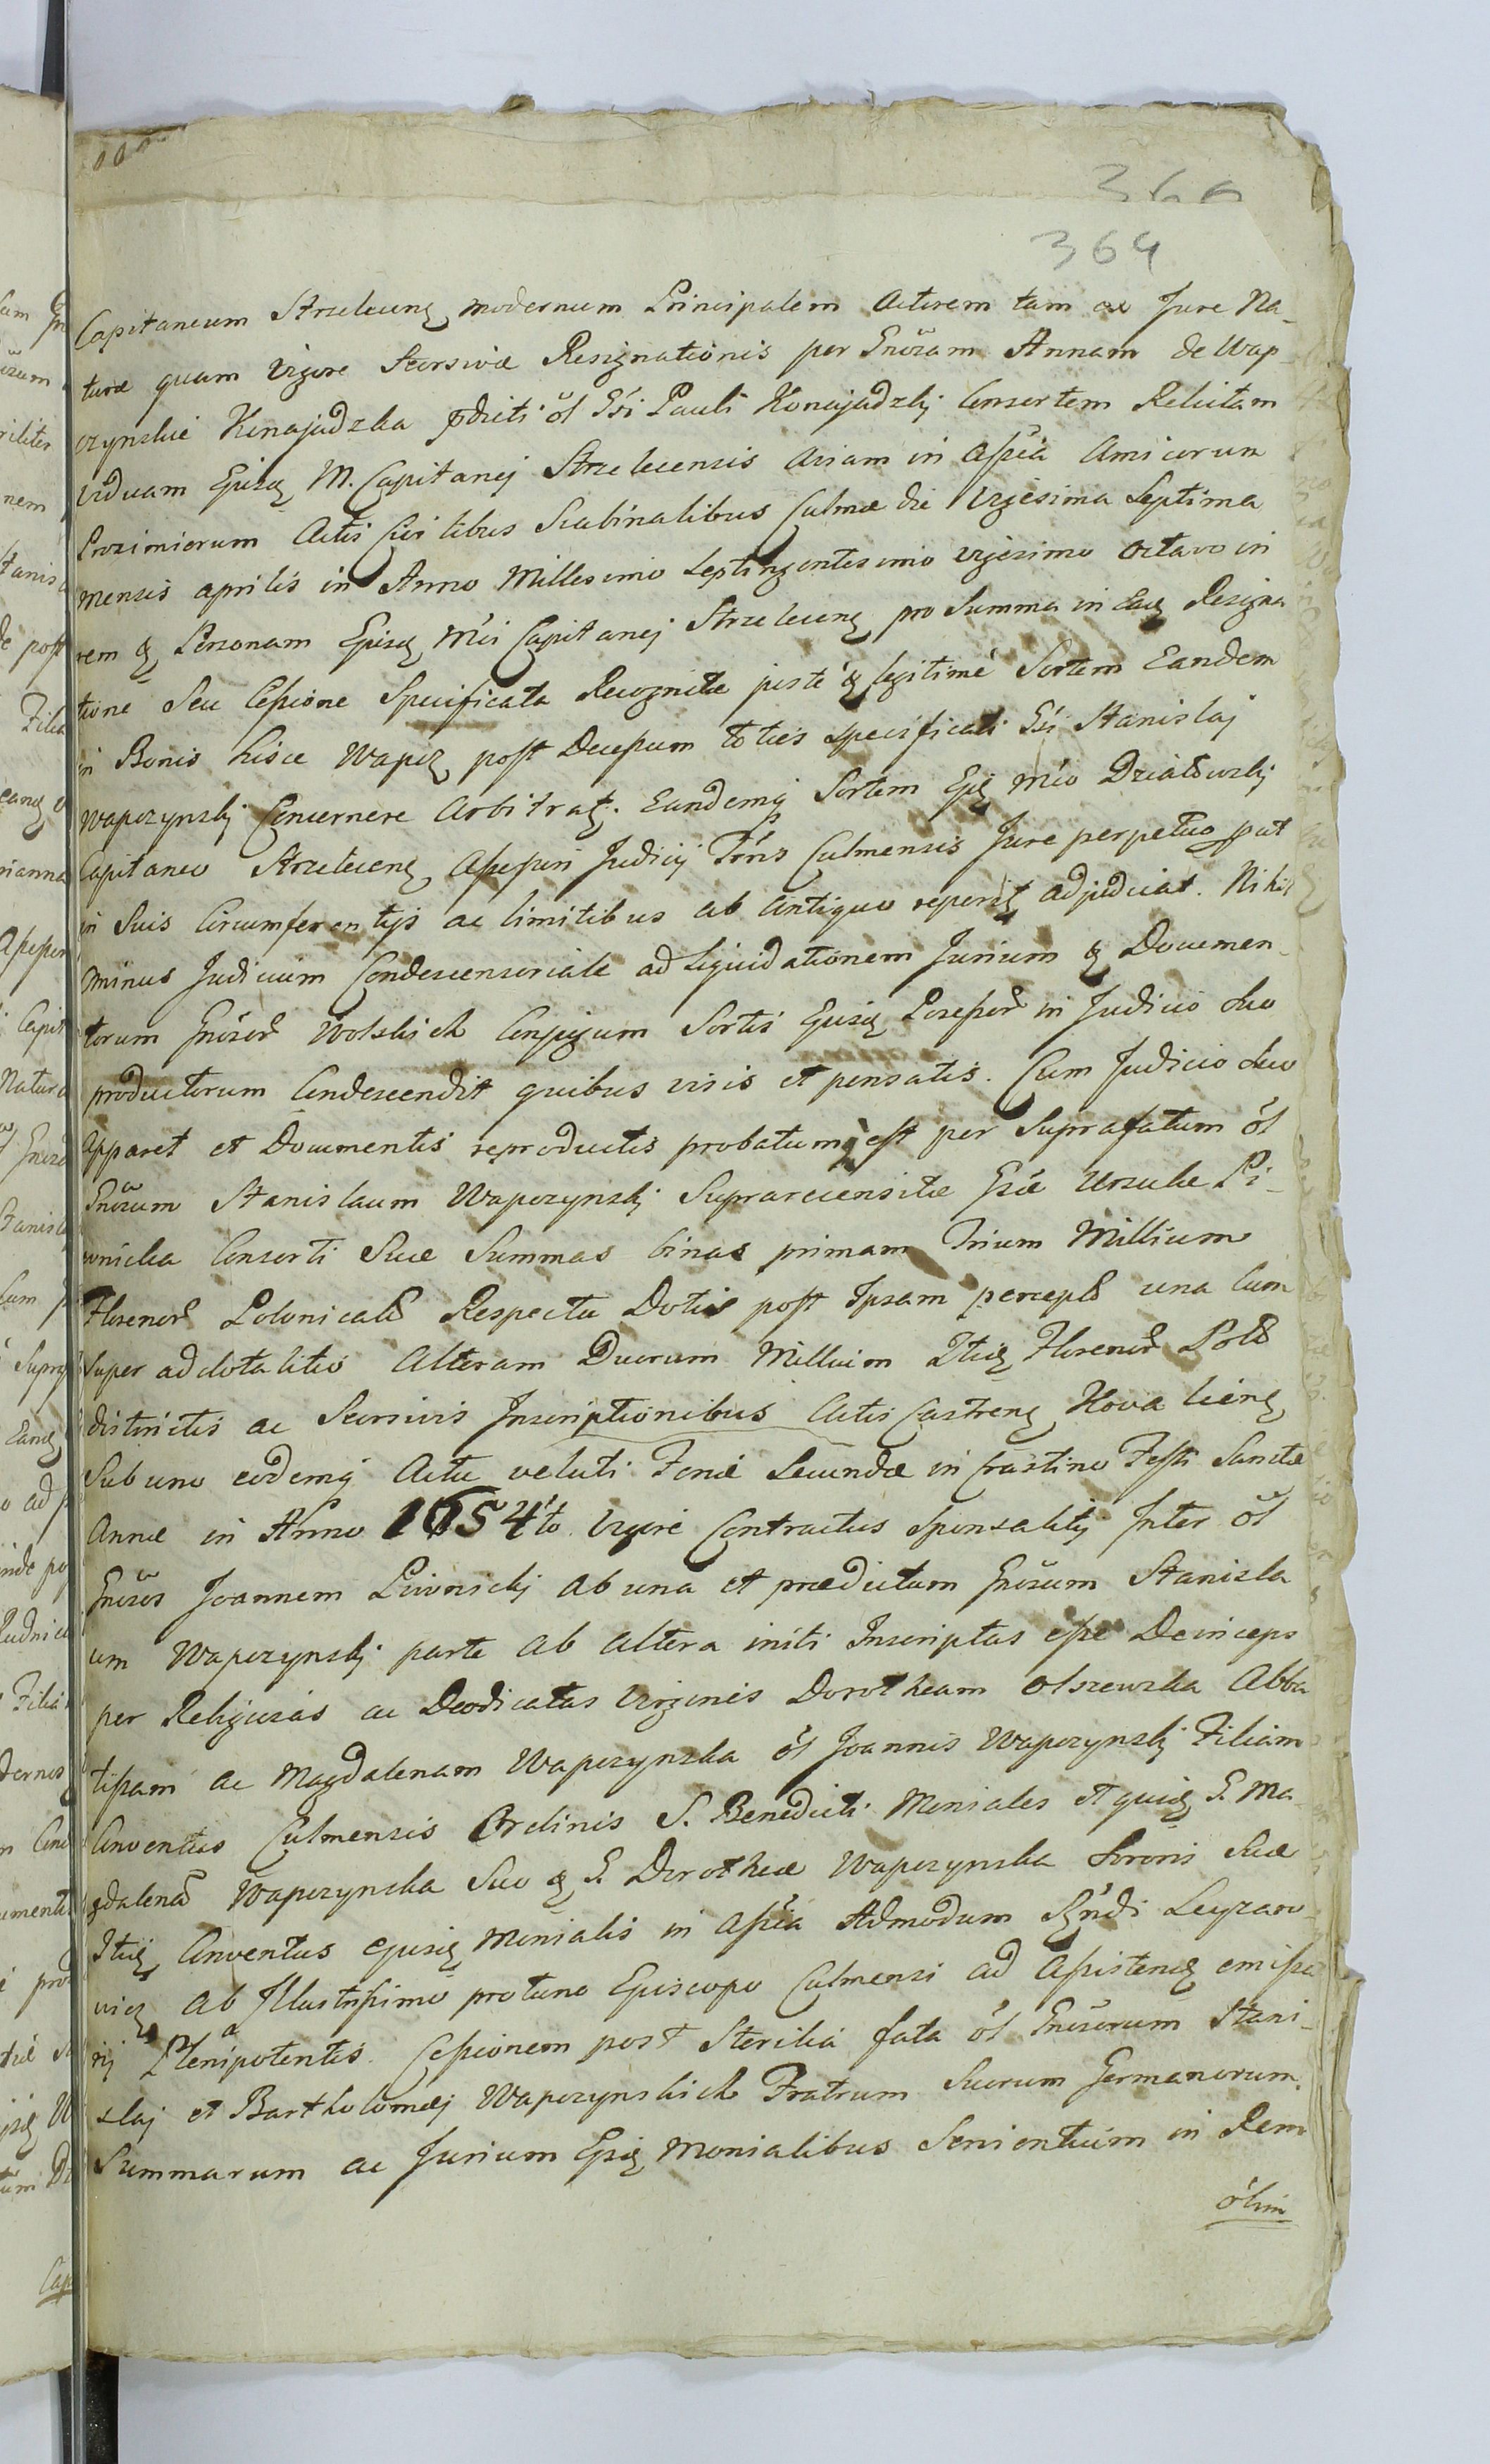 366
364
Capitaneum Strzelecens modernum Principalem Actorem tam ex Jure Na-
turæ quam Vigore Seorsivæ Resignationis per Gnõsam Annam de Wap-
czynskie Konajadzka pdicti õl Gsi Pauli Konajadzkj Consortem Relictam
Viduam Ejusq M. Capitanej Strzelecensis Aviam in Assia Amicorum
Proximiorum Actis Civilibus Scabinalibus Culmæ die Vigesima Septima
mensis aprilis in Anno Millesimo Septingentesimo vigesimo octavo in
rem & Personam Ejusq Mci Capitanej Strzelecens pro Summa in Eaq Resigna
tione Seu Cessione Specificata Recognitæ juste & legitimé Sortem Eandem
in Bonis hisce Wapcz post Decessum toties specificati Gsi Stanislaj
Wapczynskj Concernere Arbitratq. Eandemq Sortem Ejq Mco Działowskj
Capitaneo Strzelecens Assessori Judicij Tris Culmensis Jure perpetuo put
in Suis Circumferentijs ac limitibus ab Antiquo reperit adjudicat. Nihil
minus Judicium Condescensoriale ad Liquidationem Jurium & Documen-
torum Gnõsor Wolskich Conjugum Sortis Ejusq Possessor in Judicio suo
productorum Condescendit quibus visis et pensatis. Cum Judicio suo
apparet et Documentis reproductis probatum est per Suprafatum õl
Gnõsum Stanislaum Wapczynskj Suprarecensitæ Gsæ Ursulæ Pi-
wnicka Consorti Suæ Summas binas primam Trium Millium
Florenor Polonical Respectu Dotis post Ipsam percepta una cum
super addotalitio Alteram Duorum Millium Itiq Florenor Pol
distinctis ac Seorsivis Inscriptionibus Actis Castrens Kovaliens
Sub uno eodemq Actu veluti Feriæ Secundæ in Crastino Festi Sanctæ
Annæ in Anno 1654to Vigore Contractus Sponsalitij Inter õl
Gnõsos Joannem Piwnickj ab una et prædictum Gnõsum Stanisla
um Wapczynskj parte ab altera initi Inscriptas esse Deinceps
per Religiosas ac Deodicatas Virgines Dorotheam Olszewska Abba
tissam ac Magdalenam Wapczynska õl Joannis Wapczynskj Filiam
Conventus Culmensis Ordinis S. Benedicti Moniales et quidq G. Ma-
gdalenæ Wapczynska Suo & G. Dorotheæ Wapczynska Sororis Suæ
Itiq Conventus ejusq Monialis in Assia Admodum Rndi Leyzaro-
wicz ab Illustrissimo protunc Episcopo Culmensi ad Assistendq emissa
rij Plenipotentis Cessionem post Sterilia fata õl Gnõsorum Stani-
slaj et Bartholomæj Wapczynskich Fratrum Suorum Germanorum
Summarum ac Jurium Ejsq Monialibus Servientium in Rem
olim